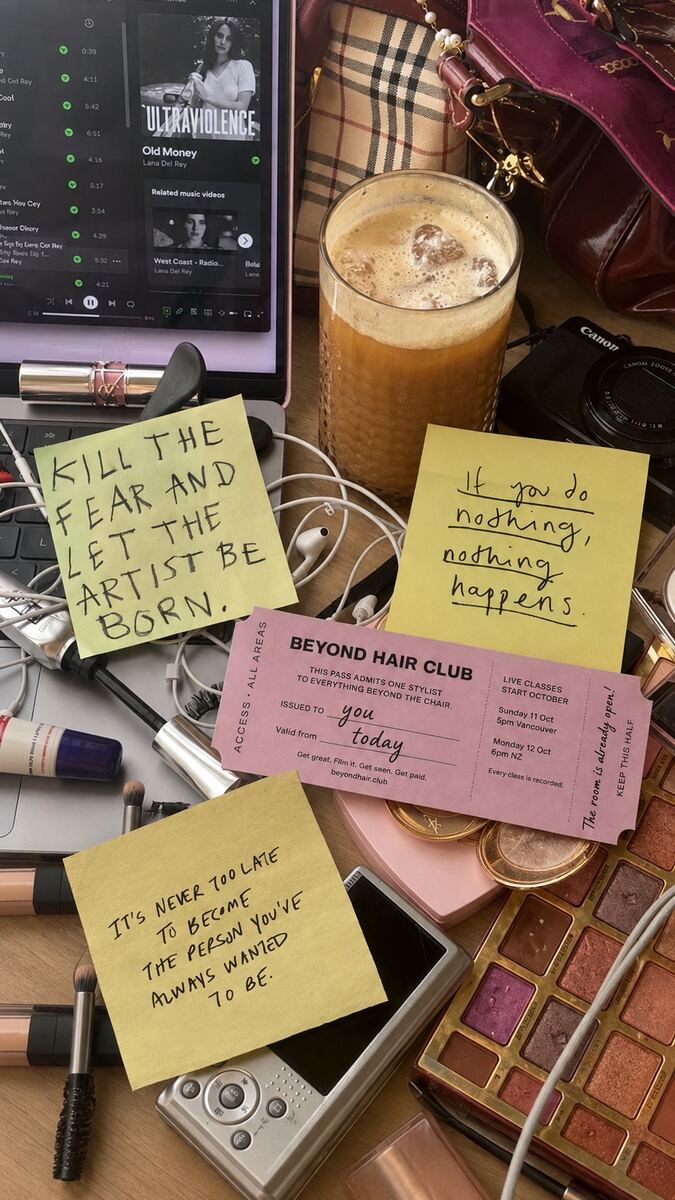 0:39
4:11
5:42
6:51
4:16
5:17
3:54
4:29
5:32
4:21
ULTRAVIOLENCE
Old Money
Lana Del Rey
Related music videos
West Coast - Radio...
Lana Del Rey
Canon
CANON ZOOM
KILL THE
FEAR AND
LET THE
ARTIST BE
BORN.
If you do
nothing,
nothing
happens.
ACCESS • ALL AREAS
BEYOND HAIR CLUB
THIS PASS ADMITS ONE STYLIST
TO EVERYTHING BEYOND THE CHAIR.
ISSUED TO you
Valid from today
Get great. Film it. Get seen. Get paid.
beyondhair.club
LIVE CLASSES
START OCTOBER
Sunday 11 Oct
5pm Vancouver
Monday 12 Oct
6pm NZ
Every class is recorded.
The room is already open!
KEEP THIS HALF
IT'S NEVER TOO LATE
TO BECOME
THE PERSON YOU'VE
ALWAYS WANTED
TO BE.